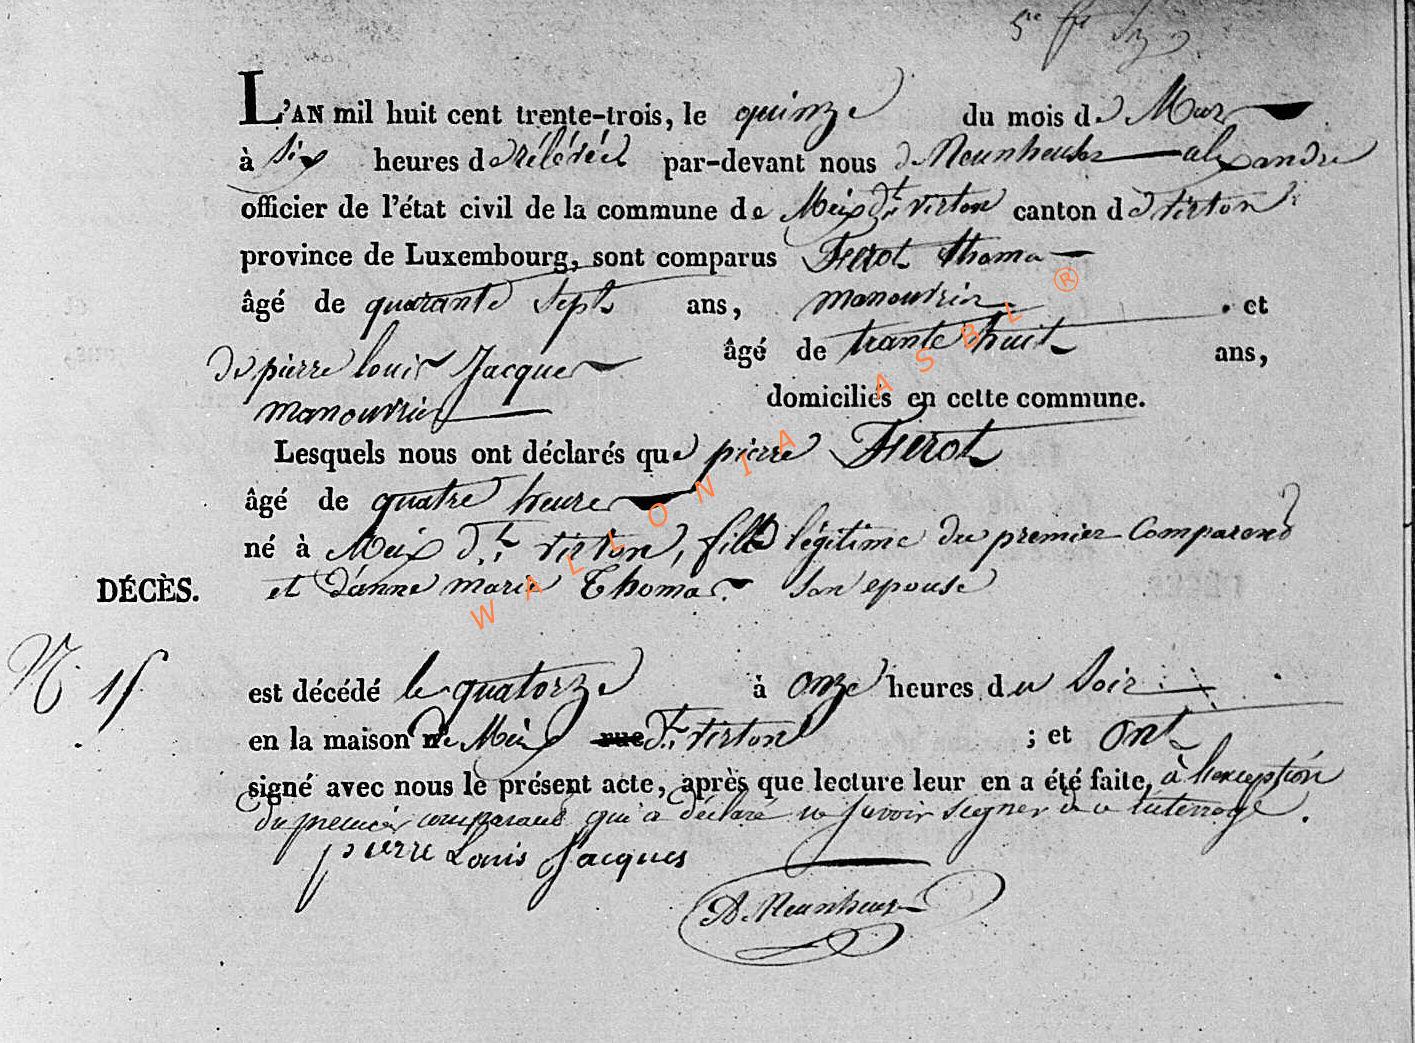 5ie
L'AN mil huit cent trente-trois, le quinze du mois de Mars
à Six heures de rélévéé par-devant nous de Neunheuser alexandre
officier de l'état civil de la commune de Meix dt virton canton de virton
province de Luxembourg, sont comparus Fierot thoma
âgé de quarante Sept ans, manouvrier et
de pierre louis Jacques âgé de trante huit ans,
manouvrier domiciliés en cette commune.
Lesquels nous ont déclarés que pierre Fierot
âgé de quatre heures
né à Meix dt virton, fils légitime du premier Comparend
DÉCÈS. et d'anne marie Thomas Son epouse
N. 15
est décédé le quatorze à onze heures du Soir
en la maison de Meix rue dt virton ; et ont
signé avec nous le présent acte, après que lecture leur en a été faite, à l'exception
du premier comparans qui a déclaré ne savoir signer de ce interrogé.
pierre Louis Jacques
A. Neunheuser
WALLONIA ASBL ®